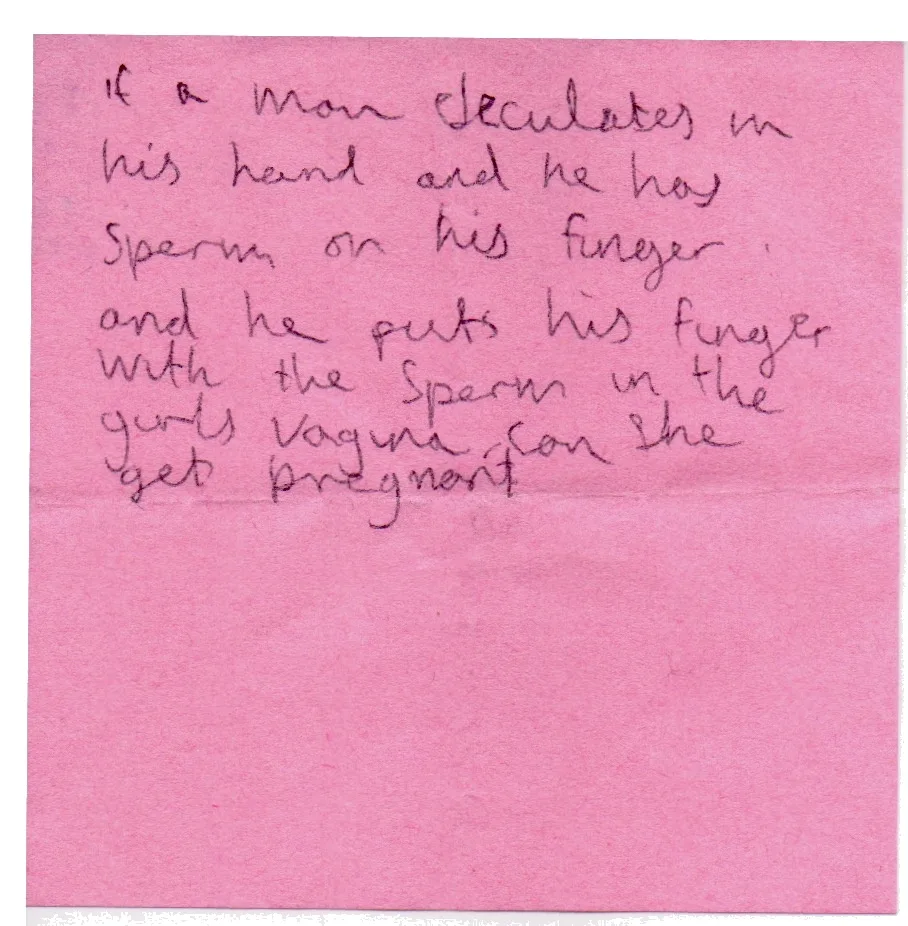 if a man ejeculates in
his hand and he has
sperm on his finger.
and he puts his finger
with the sperm in the
girls vagina, can she
get pregnant